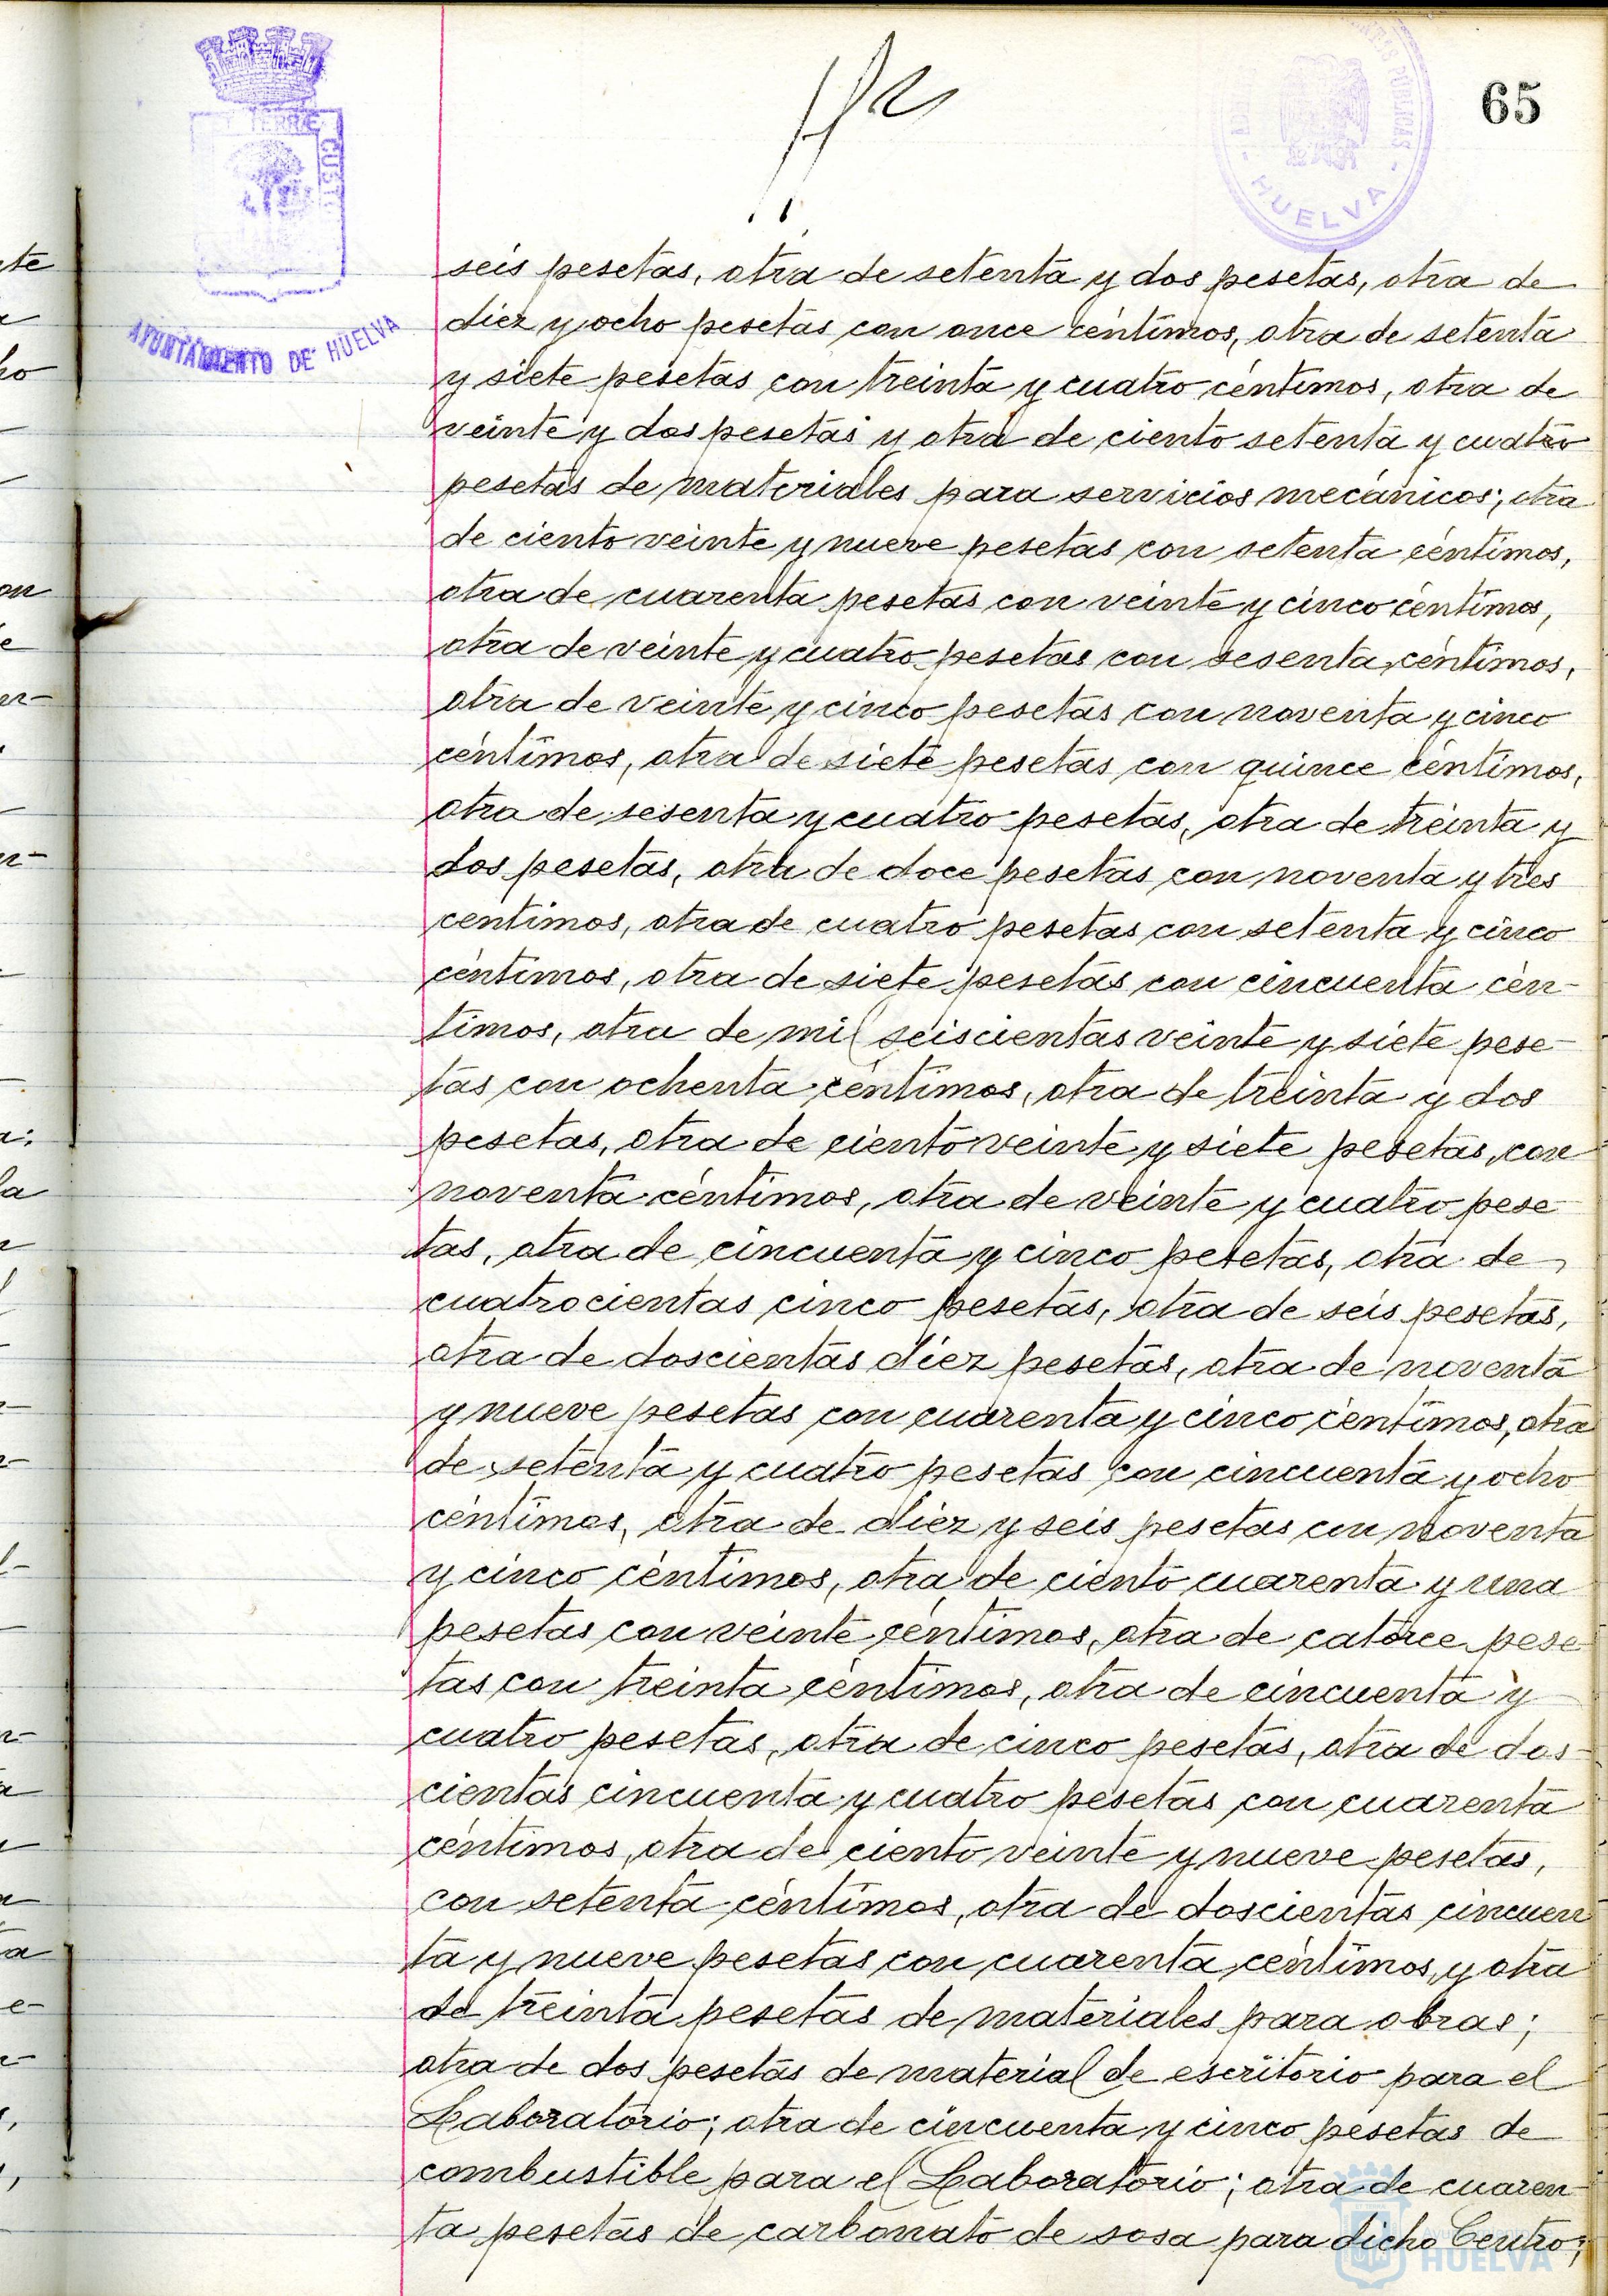 65
TERRÆ
CUSTO
AYUNTAMIENTO DE HUELVA
HUELVA
seis pesetas, otra de setenta y dos pesetas, otra de
diez y ocho pesetas con once céntimos, otra de setenta
y siete pesetas con treinta y cuatro céntimos, otra de
veinte y dos pesetas y otra de ciento setenta y cuatro
pesetas de materiales para servicios mecánicos; otra
de ciento veinte y nueve pesetas con setenta céntimos,
otra de cuarenta pesetas con veinte y cinco céntimos,
otra de veinte y cuatro pesetas con sesenta céntimos,
otra de veinte y cinco pesetas con noventa y cinco
céntimos, otra de siete pesetas con quince céntimos,
otra de sesenta y cuatro pesetas, otra de treinta y
dos pesetas, otra de doce pesetas con noventa y tres
centimos, otra de cuatro pesetas con setenta y cinco
céntimos, otra de siete pesetas con cincuenta cén-
timos, otra de mil seiscientas veinte y siete pese-
tas con ochenta céntimos, otra de treinta y dos
pesetas, otra de ciento veinte y siete pesetas, con
noventa céntimos, otra de veinte y cuatro pese-
tas, otra de cincuenta y cinco pesetas, otra de
cuatrocientas cinco pesetas, otra de seis pesetas,
otra de doscientas diez pesetas, otra de noventa
y nueve pesetas con cuarenta y cinco céntimos, otra
de setenta y cuatro pesetas con cincuenta y ocho
céntimos, otra de diez y seis pesetas con noventa
y cinco céntimos, otra de ciento cuarenta y una
pesetas con veinte céntimos, otra de catorce pese-
tas con treinta céntimos, otra de cincuenta y
cuatro pesetas, otra de cinco pesetas, otra de dos-
cientas cincuenta y cuatro pesetas con cuarenta
céntimos, otra de ciento veinte y nueve pesetas,
con setenta céntimos, otra de doscientas cincuen
ta y nueve pesetas con cuarenta céntimos, y otra
de treinta pesetas de materiales para obras;
otra de dos pesetas de material de escritorio para el
Laboratorio; otra de cincuenta y cinco pesetas de
combustible para el Laboratorio; otra de cuaren-
ta pesetas de carbonato de sosa para dicho Centro;
HUELVA